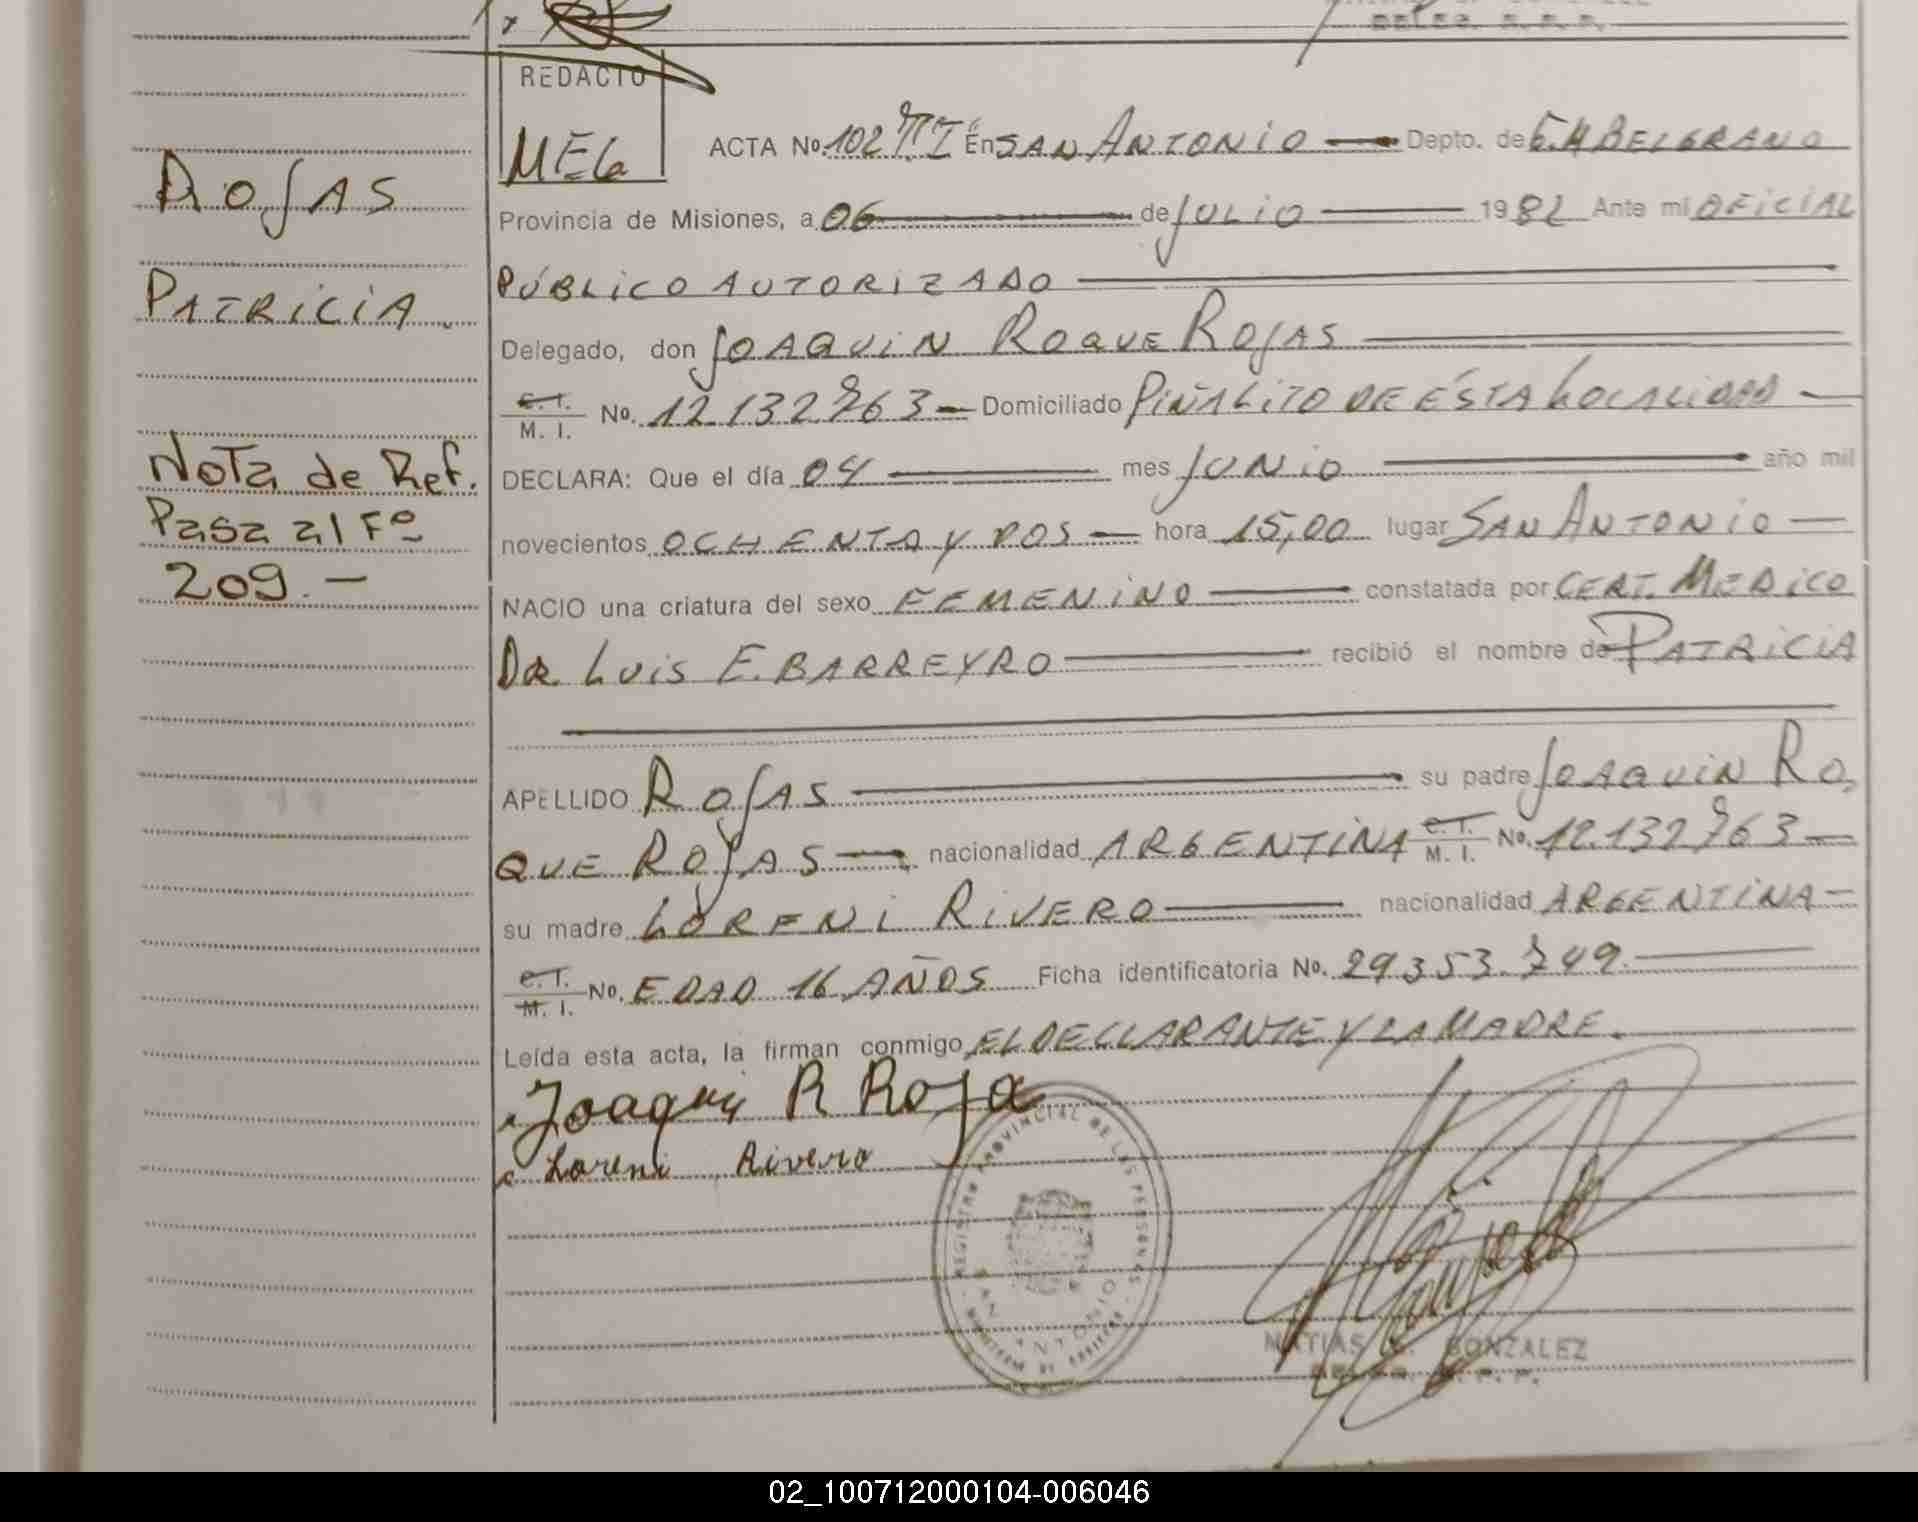 REDACTO
MEG
ACTA No. 102 TI En SAN ANTONIO Depto. de G.M BELGRANO
Provincia de Misiones, a 06 de JULIO 1982 Ante mi OFICIAL
PÚBLICO AUTORIZADO
Delegado, don JOAQUIN ROQUE ROJAS
C. I.
M. I. No. 12.132.763 Domiciliado PIÑALITO DE ÉSTA LOCALIDAD
DECLARA: Que el día 04 mes JUNIO año mil
novecientos OCHENTA Y DOS hora 15,00 lugar SAN ANTONIO
NACIO una criatura del sexo FEMENINO constatada por CERT. MEDICO
DR. LUIS E. BARREYRO recibió el nombre de PATRICIA
APELLIDO ROJAS su padre JOAQUIN RO,
QUE ROJAS nacionalidad ARGENTINA C. I. M. I. No. 12.132.763
su madre LORENI RIVERO nacionalidad ARGENTINA
C. I.
M. I. No. EDAD 16 AÑOS Ficha identificatoria No. 29353.749.
Leída esta acta, la firman conmigo EL DECLARANTE Y LA MADRE.
Joaquin R Roja
Loreni Rivero
REGISTRO PROVINCIAL DE LAS PERSONAS
SAN ANTONIO
MATIAS GONZALEZ
ROJAS
PATRICIA.
Nota de Ref.
Pasa al Fº
209.-
02_100712000104-006046